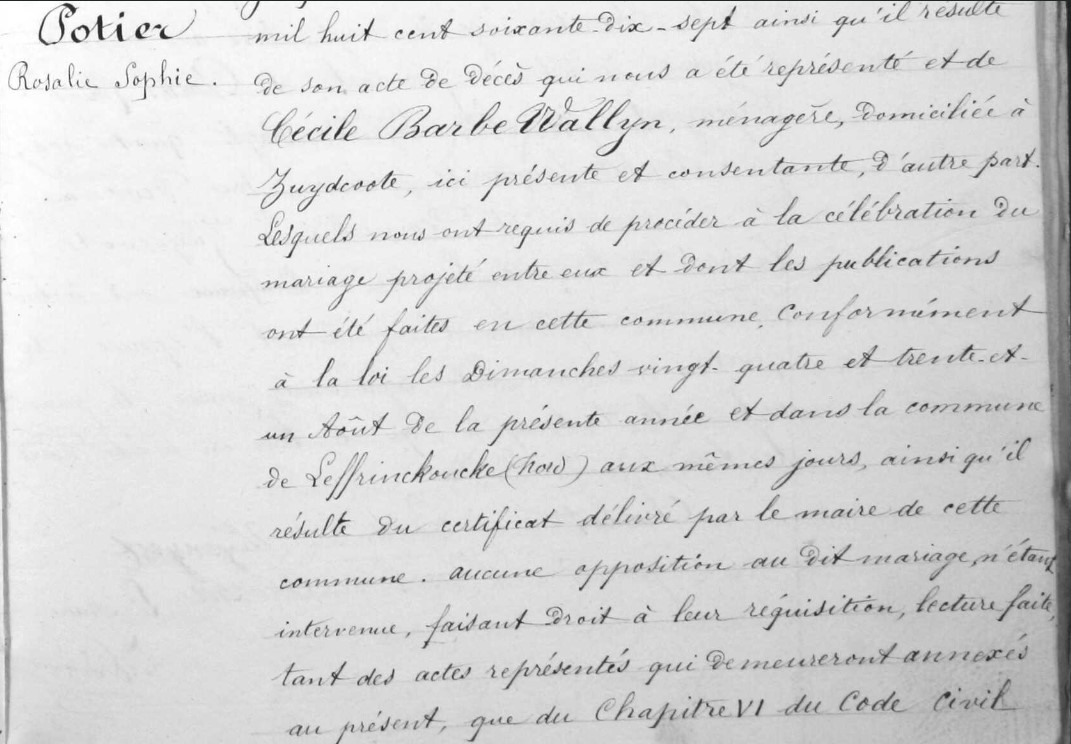 Potier
Rosalie Sophie.
mil huit cent soixante-dix-sept ainsi qu'il résulte
de son acte de décès qui nous a été représenté et de
Cécile Barbe Wallyn, ménagère, domiciliée à
Zuydcoote, ici présente et consentante, d'autre part.
Lesquels nous ont requis de procéder à la célébration du
mariage projeté entre eux et dont les publications
ont été faites en cette commune, conformément
à la loi les Dimanches vingt-quatre et trente-et-
un Août de la présente année et dans la commune
de Leffrinckoucke (Nord) aux mêmes jours, ainsi qu'il
résulte du certificat délivré par le maire de cette
commune. aucune opposition au dit mariage, n'étant
intervenue, faisant droit à leur réquisition, lecture faite,
tant des actes représentés qui demeureront annexés
au présent, que du Chapitre VI du Code Civil